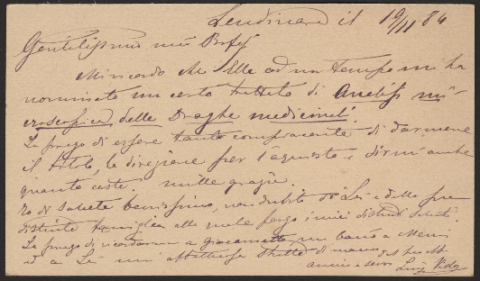 Lendinara il 19/11 84
Gentilissimo mio Prof
Mi ricordo che Ella ad un tempo m'ha
nominato un certo trattato di Analisi mi-
croscopica delle Droghe medicinali.
La prego di essere tanto compiacente di darmene
il titolo la direzione per l'acquisto e dirmi anche
quanto costa. mille grazie.
Io di salute benissimo, non dubito di Lei e della sua
distinta famiglia alla quale porgo i miei distinti saluti.
La prego di ricordarmi a Giacometto, un bacio a
ed a Lei una stretta di mano
amico e servo Luigi